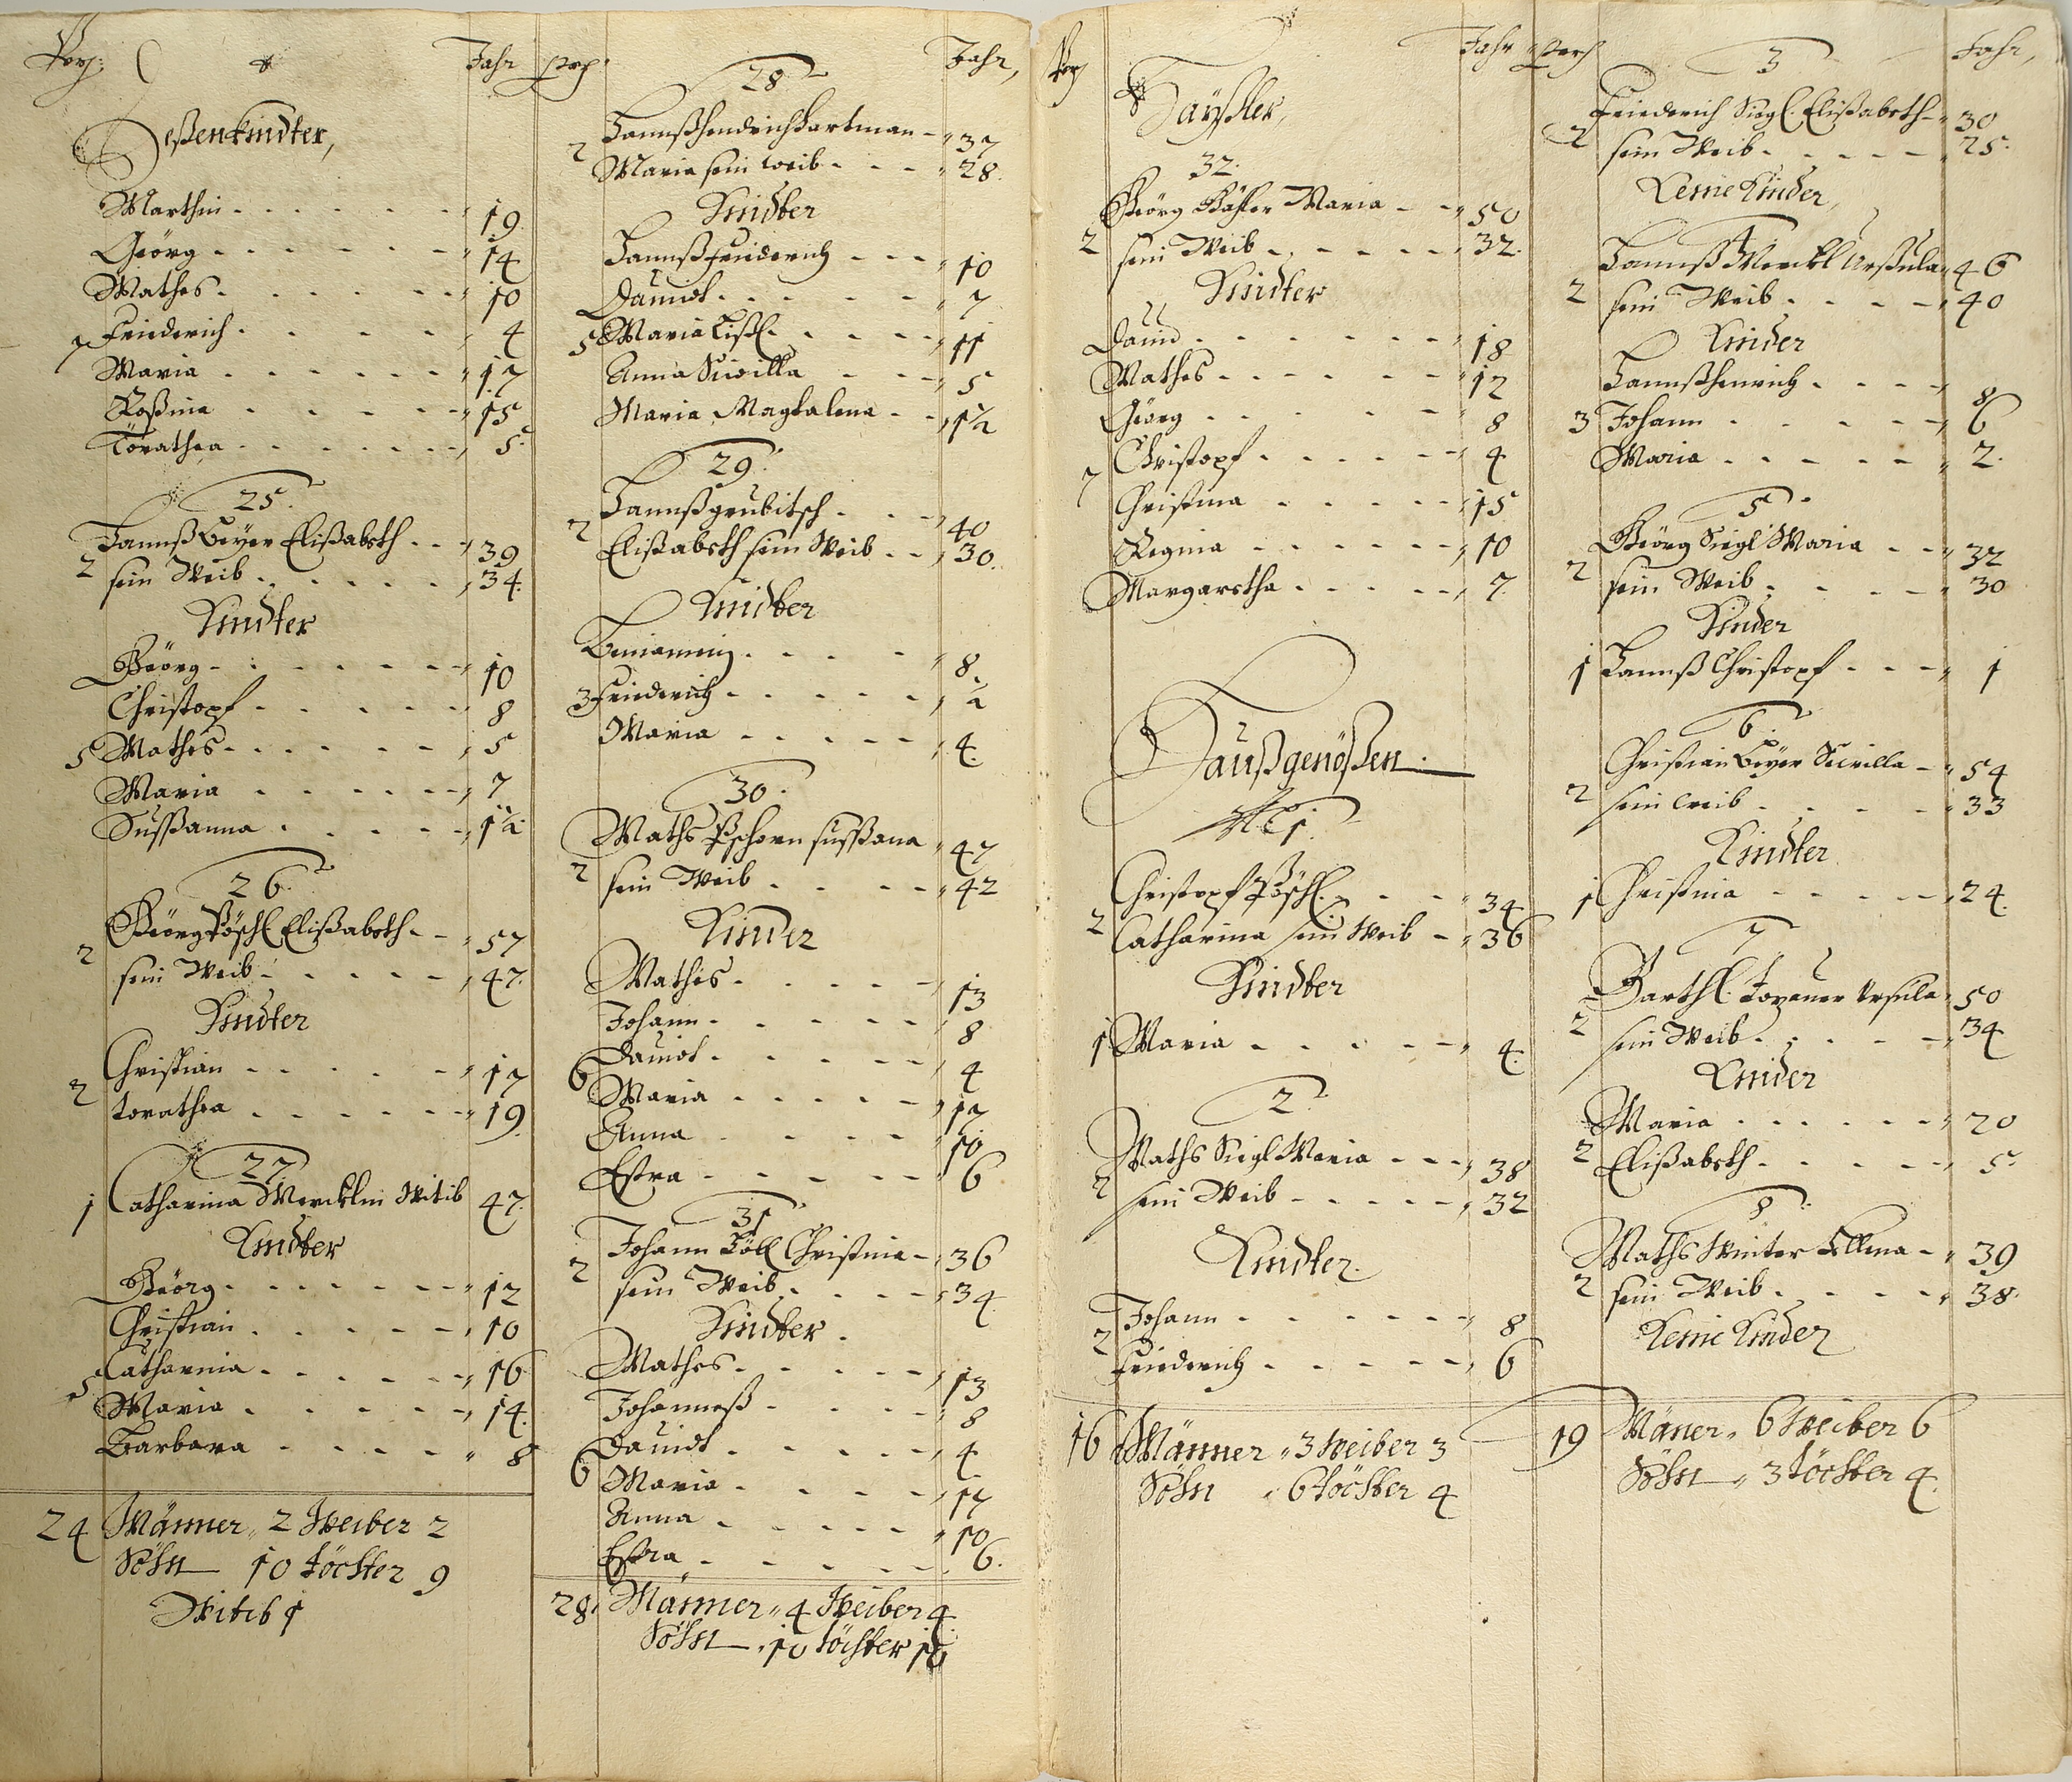 Perß: Jahr
Deßenkindter,
Marthin - - - - - 19.
Geörg - - - - - 14
Mathes - - - - - 10
7 Friederich - - - - 4
Maria - - - - - 17
Roßina - - - - - 15
Torathea - - - - - 5.
25.
2 Hannß Beyer Elißabeth - - 39
sein Weib - - - - - 34.
Kindter
Geörg - - - - - 10
Christopf - - - - - 8
5 Mathes - - - - - 5
Maria - - - - - 7
Sußßanna - - - - 1½
26.
2 Geörg Pöschl Elißabeth - - 57
sein Weib - - - - - 47.
Kindter
2 Christian - - - - - 17
torathea - - - - - 19.
27.
1 Catharina Mercklin Witib 47.
Kindter
Geörg - - - - - 12
Christian - - - - - 10
5 Catharina - - - - - 16
Maria - - - - - 14.
Barbara - - - - - 8
24 Männer 2 Weiber 2
Söhn 10 töchter 9
Witib 1
Perß: Jahr,
28
2 Hannßhendrich hartman - 37
Maria sein weib - - - 28.
Kindter
Hannß friderich - - - 10
Dauidt - - - - - 7
5 Maria Lißl - - - - 11
Anna Siwilla - - - 5
Maria Magdalena - - 1½
29.
2 Hannß grubitsch - - - 40
Elißabeth sein Weib - - 30.
Kindter
Beniamin - - - - 8.
3 Friederich - - - - ½
Maria - - - - - 4.
30.
Maths Pschorn sußßana 47
2 sein Weib - - - - 42
Kinder
Mathes - - - - - 13
Johann - - - - - 8
6 Dauidt - - - - - 4
Maria - - - - - 17
Anna - - - - - 10
Estra - - - - - 6
31
2 Johann Töll Christina - 36
sein Weib - - - - 34
Kindter
Mathes - - - - - 13
Johanneß - - - - 8
6 Dauidt - - - - - 4
Maria - - - - - 17
Anna - - - - - 10
Estra - - - - - 6.
28 Männer 4 Weiber 4
Söhn 10 töchter 10
Perß Jahr
Häyßler,
32.
Geörg Häßler Maria - - 50
2 sein Weib - - - - - 32.
Kindter
Dauid - - - - - 18
Mathes - - - - - 12
Geörg - - - - - 8
7 Christopf - - - - - 4
Christina - - - - - 15
Regina - - - - - 10
Margaretha - - - - 7.
Haußgenößen
No 1.
2 Christopf Pöschl - - - 34
Catharina sein Weib - 36
Kindter
1 Maria - - - - - 4.
2
2 Maths Siegl Maria - - - 38
sein Weib - - - - - 32
Kindter
2 Johann - - - - - 8
Friederich - - - - - 6
16 Männer 3 Weiber 3
Söhn 6 töchter 4
Perß Jahr,
3
2 Friederich Siegl Elißabeth - 30
sein Weib - - - - - 25.
Keine Kinder
4
Hannß Merckl Urßula 46
2 sein Weib - - - - 40
Kinder
Hannß henrich - - - - 8
3 Johann - - - - - 6
Maria - - - - - 2.
5
2 Geörg Siegl Maria - - 32
sein Weib - - - - 30
Kinder
1 Hannß Christopf - - - 1
6
2 Christian Beyer Siwilla - 54
sein weib - - - - 33
Kindter
1 Christina - - - - 24.
7
2 Barthl. Toyauer Ursula 50
sein Weib - - - - 34
Kinder
Maria - - - - - 20
2 Elißabeth - - - - - 5.
8
2 Maths Winter Ellena - 39
sein Weib - - - - 38.
Keine Kinder
19 Mäner 6 Weiber 6
Söhn 3 töchter 4.